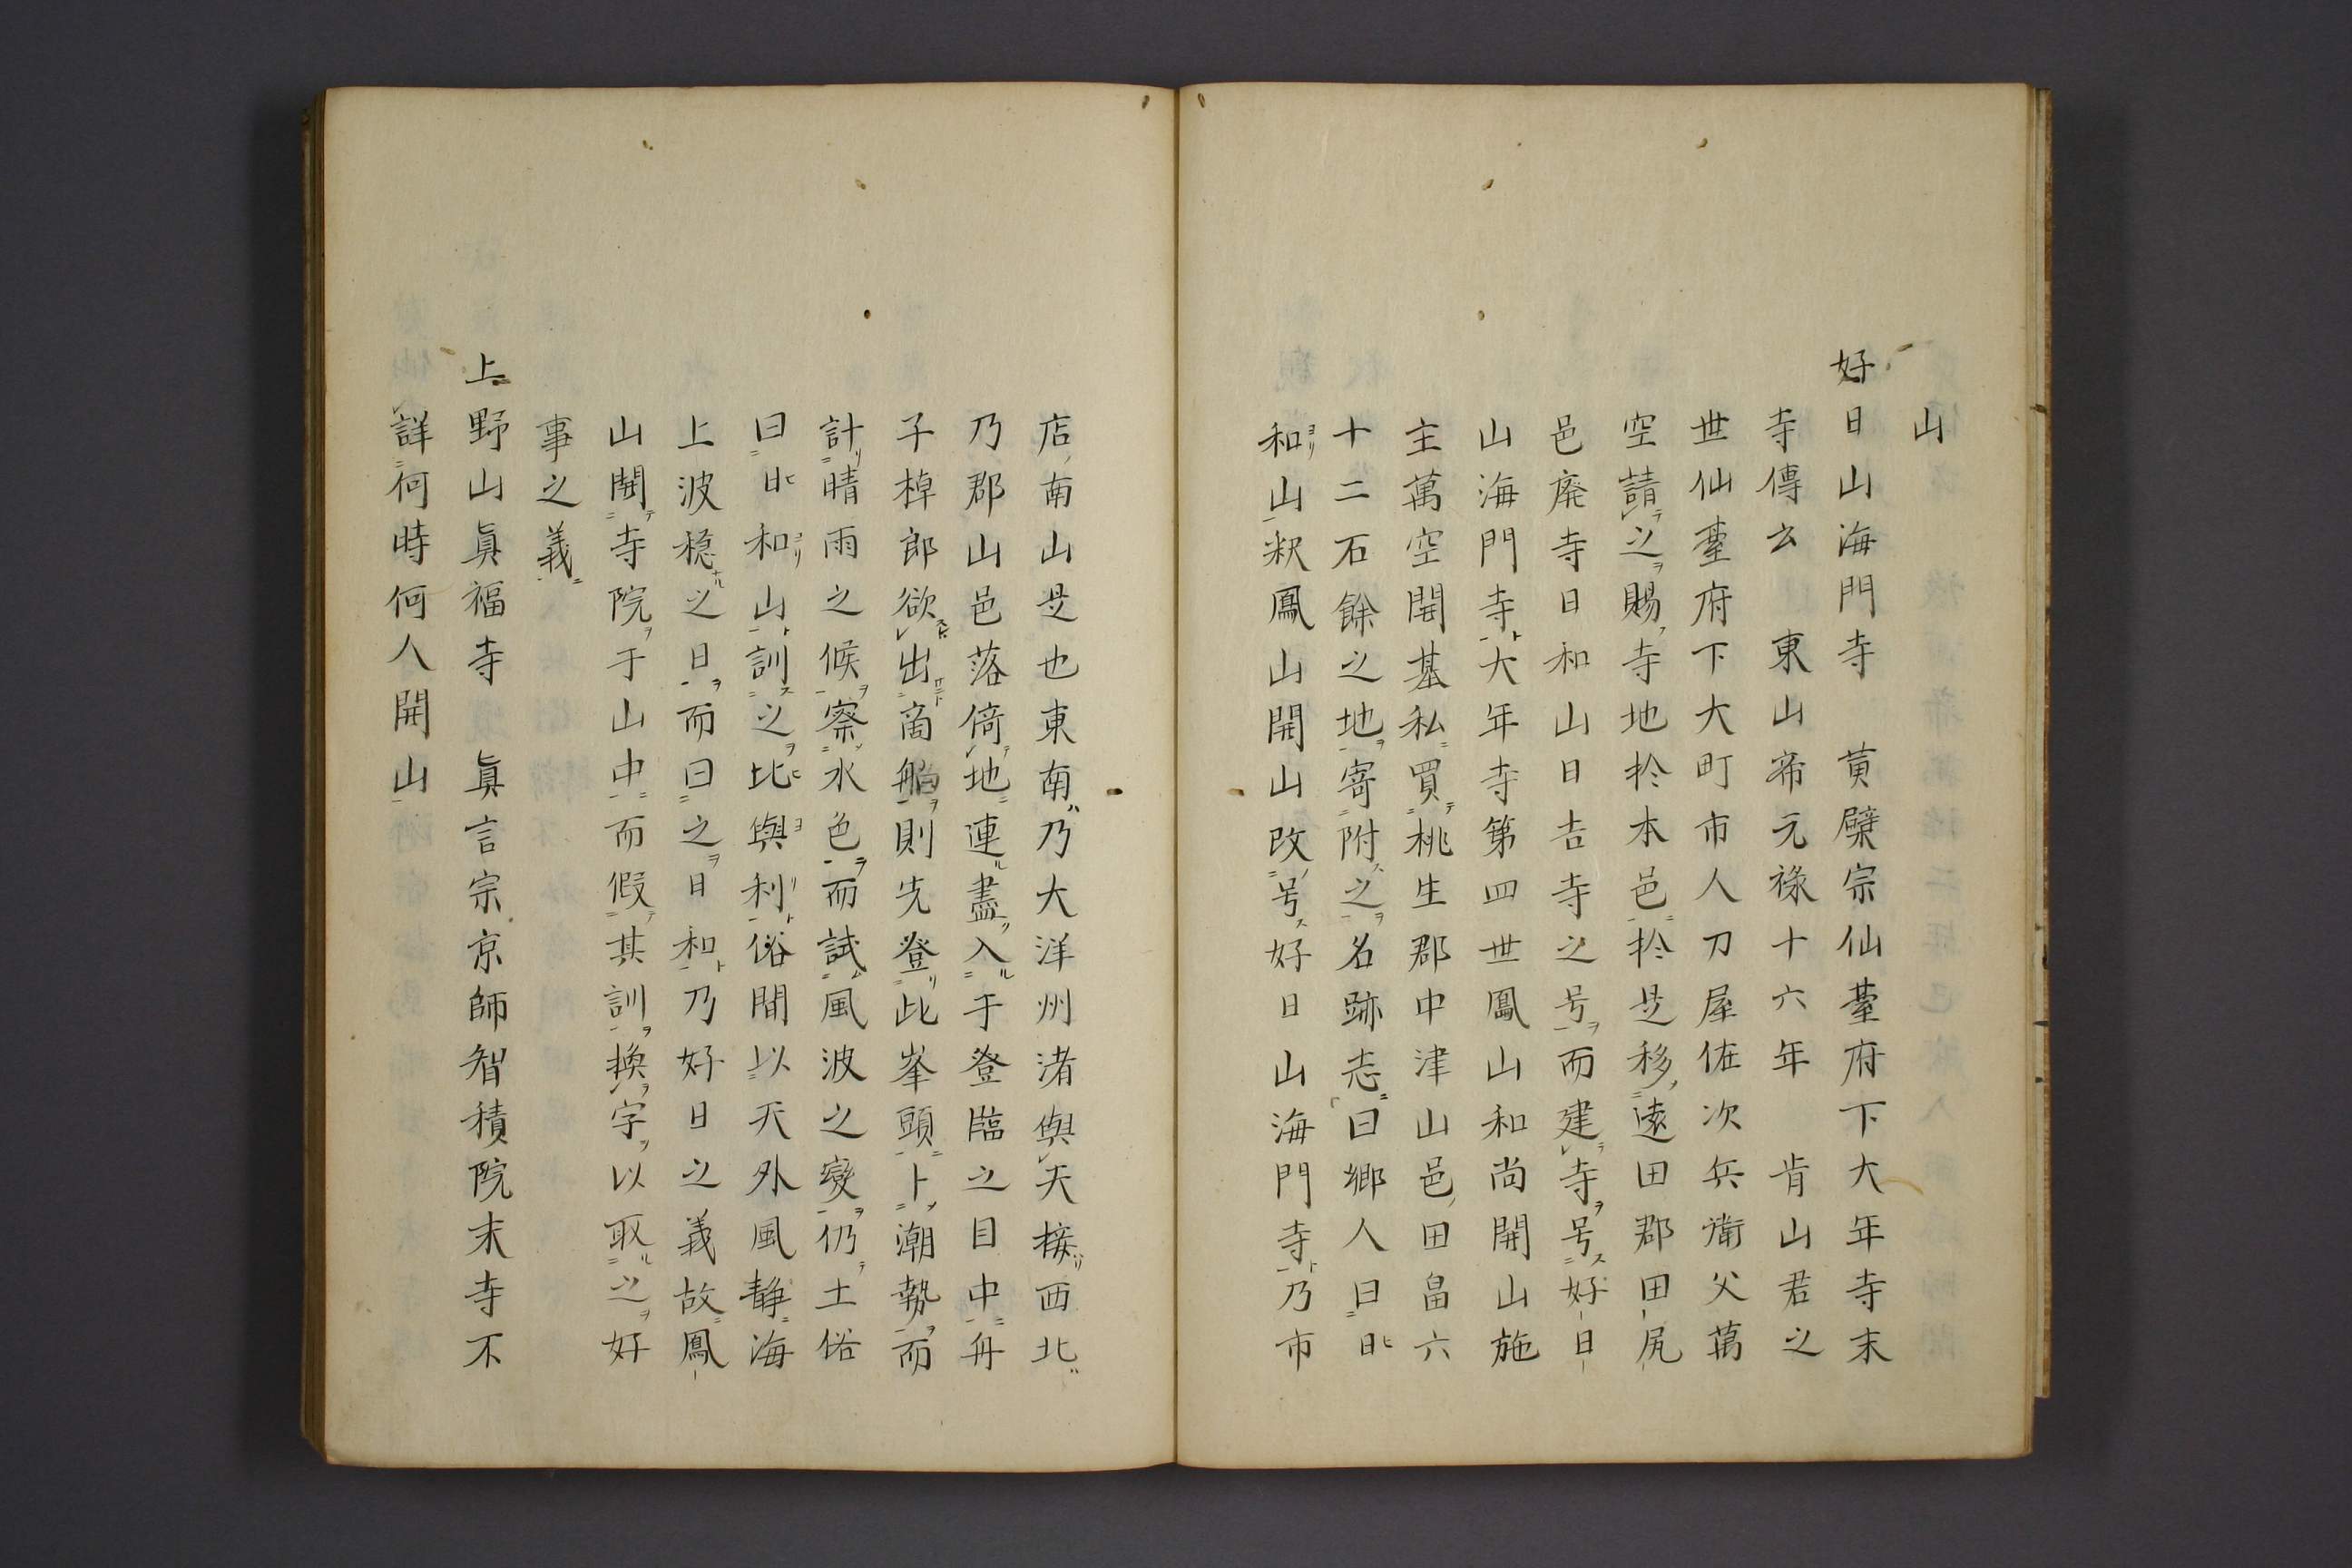 山
好日山海門寺　黄檗宗仙臺府下大年寺末
寺傳云　東山帝元祿十六年　肯山君之
世仙臺府下大町市人刀屋佐次兵衛父萬
空請之賜寺地於本邑於是移遠田郡田尻
邑廃寺日和山日吉寺之号而建寺号好日
山海門寺大年寺第四世鳳山和尚開山施
主萬空開基私買桃生郡中津山邑田畠六
十二石餘之地寄附之名跡志曰郷人曰日
和山釈鳳山開山改号好日山海門寺乃市
店南山是也東南乃大洋州渚與天接西北
乃郡山邑落倚地連盡入于登臨之目中舟
子棹郎欲出商舶則先登此峯頭卜潮勢而
計晴雨之候察水色而試風波之變仍土俗
曰日和山訓之比與利俗間以天外風静海
上波穏之日而曰之日和乃好日之義故鳳
山開寺院于山中而假其訓換字以取之好
事之義
上野山眞福寺　眞言宗京師智積院末寺不
詳何時何人開山